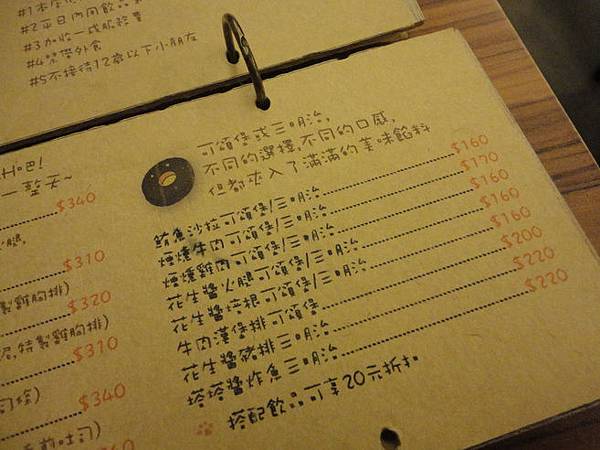 #2平日內用飲品
#3加收一成服務費
#4禁帶外食
#5不接待12歲以下小朋友
$340
$310
$320
特製雞胸排)
$310
$340
可頌堡或三明治,
不同的選擇,不同的口感,
但都夾入了滿滿的美味餡料
鮪魚沙拉可頌堡/三明治 $160
煙燻牛肉可頌堡/三明治 $170
煙燻雞肉可頌堡/三明治 $160
花生醬火腿可頌堡/三明治 $160
花生醬培根可頌堡/三明治 $160
牛肉漢堡排可頌堡 $200
花生醬豬排三明治 $220
塔塔醬炸魚三明治 $220
搭配飲品可享20元折扣